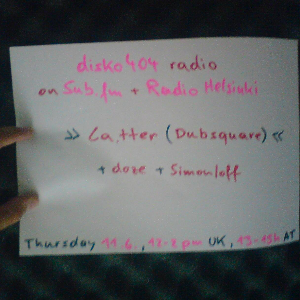 disko404 radio
on Sub.fm + Radio Helsinki
» La.tter (Dubsquare) «
+ doze + Simon/off
Thursday 11.6., 12-2pm UK, 13-15h AT